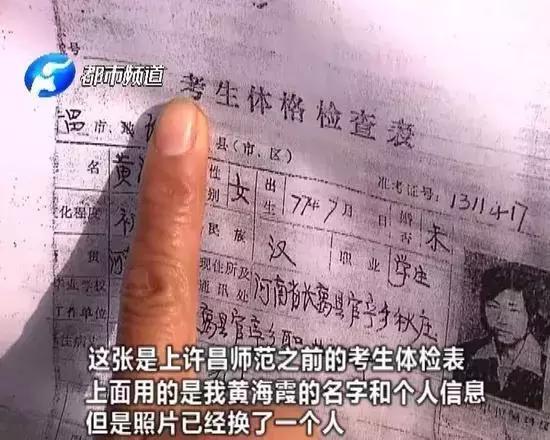 号
都市频道
考生体格检查表
市、县(市、区)
准考证号:1311417
名 黄 性别 女 出生 77年7月 日 婚否 未
化程度 初 民族 汉 职业 学生
贯 河 现住所及通讯处 河南省长葛县官亭乡秋庄
毕业学校
工作单位 葛县官亭乡职
这张是上许昌师范之前的考生体检表
上面用的是我黄海霞的名字和个人信息
但是照片已经换了一个人